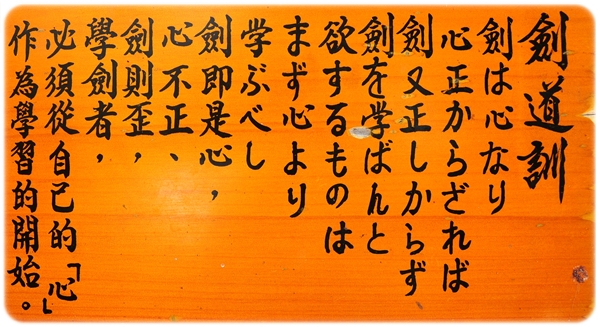 劍道訓
劍は心なり
心正からざれば
劍又正しからず
劍を学ばんと
欲するものは
まず心より
学ぶべし
劍即是心，
心不正、
劍則歪，
學劍者，
必須從自己的「心」
作為學習的開始。